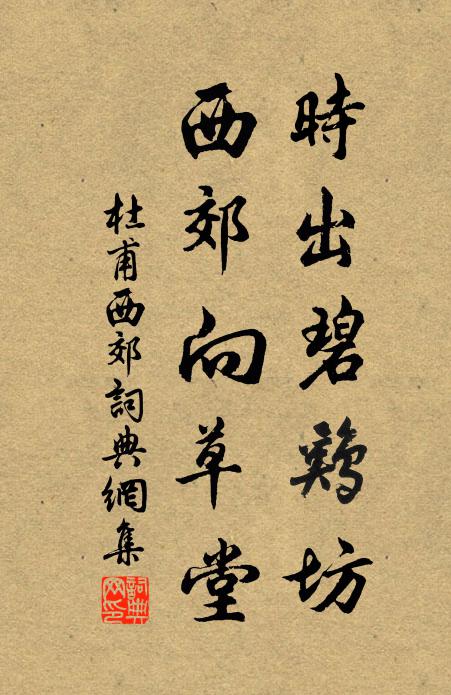 時出碧鷄坊
西郊向草堂
杜甫西郊詞典網集
詞典网印